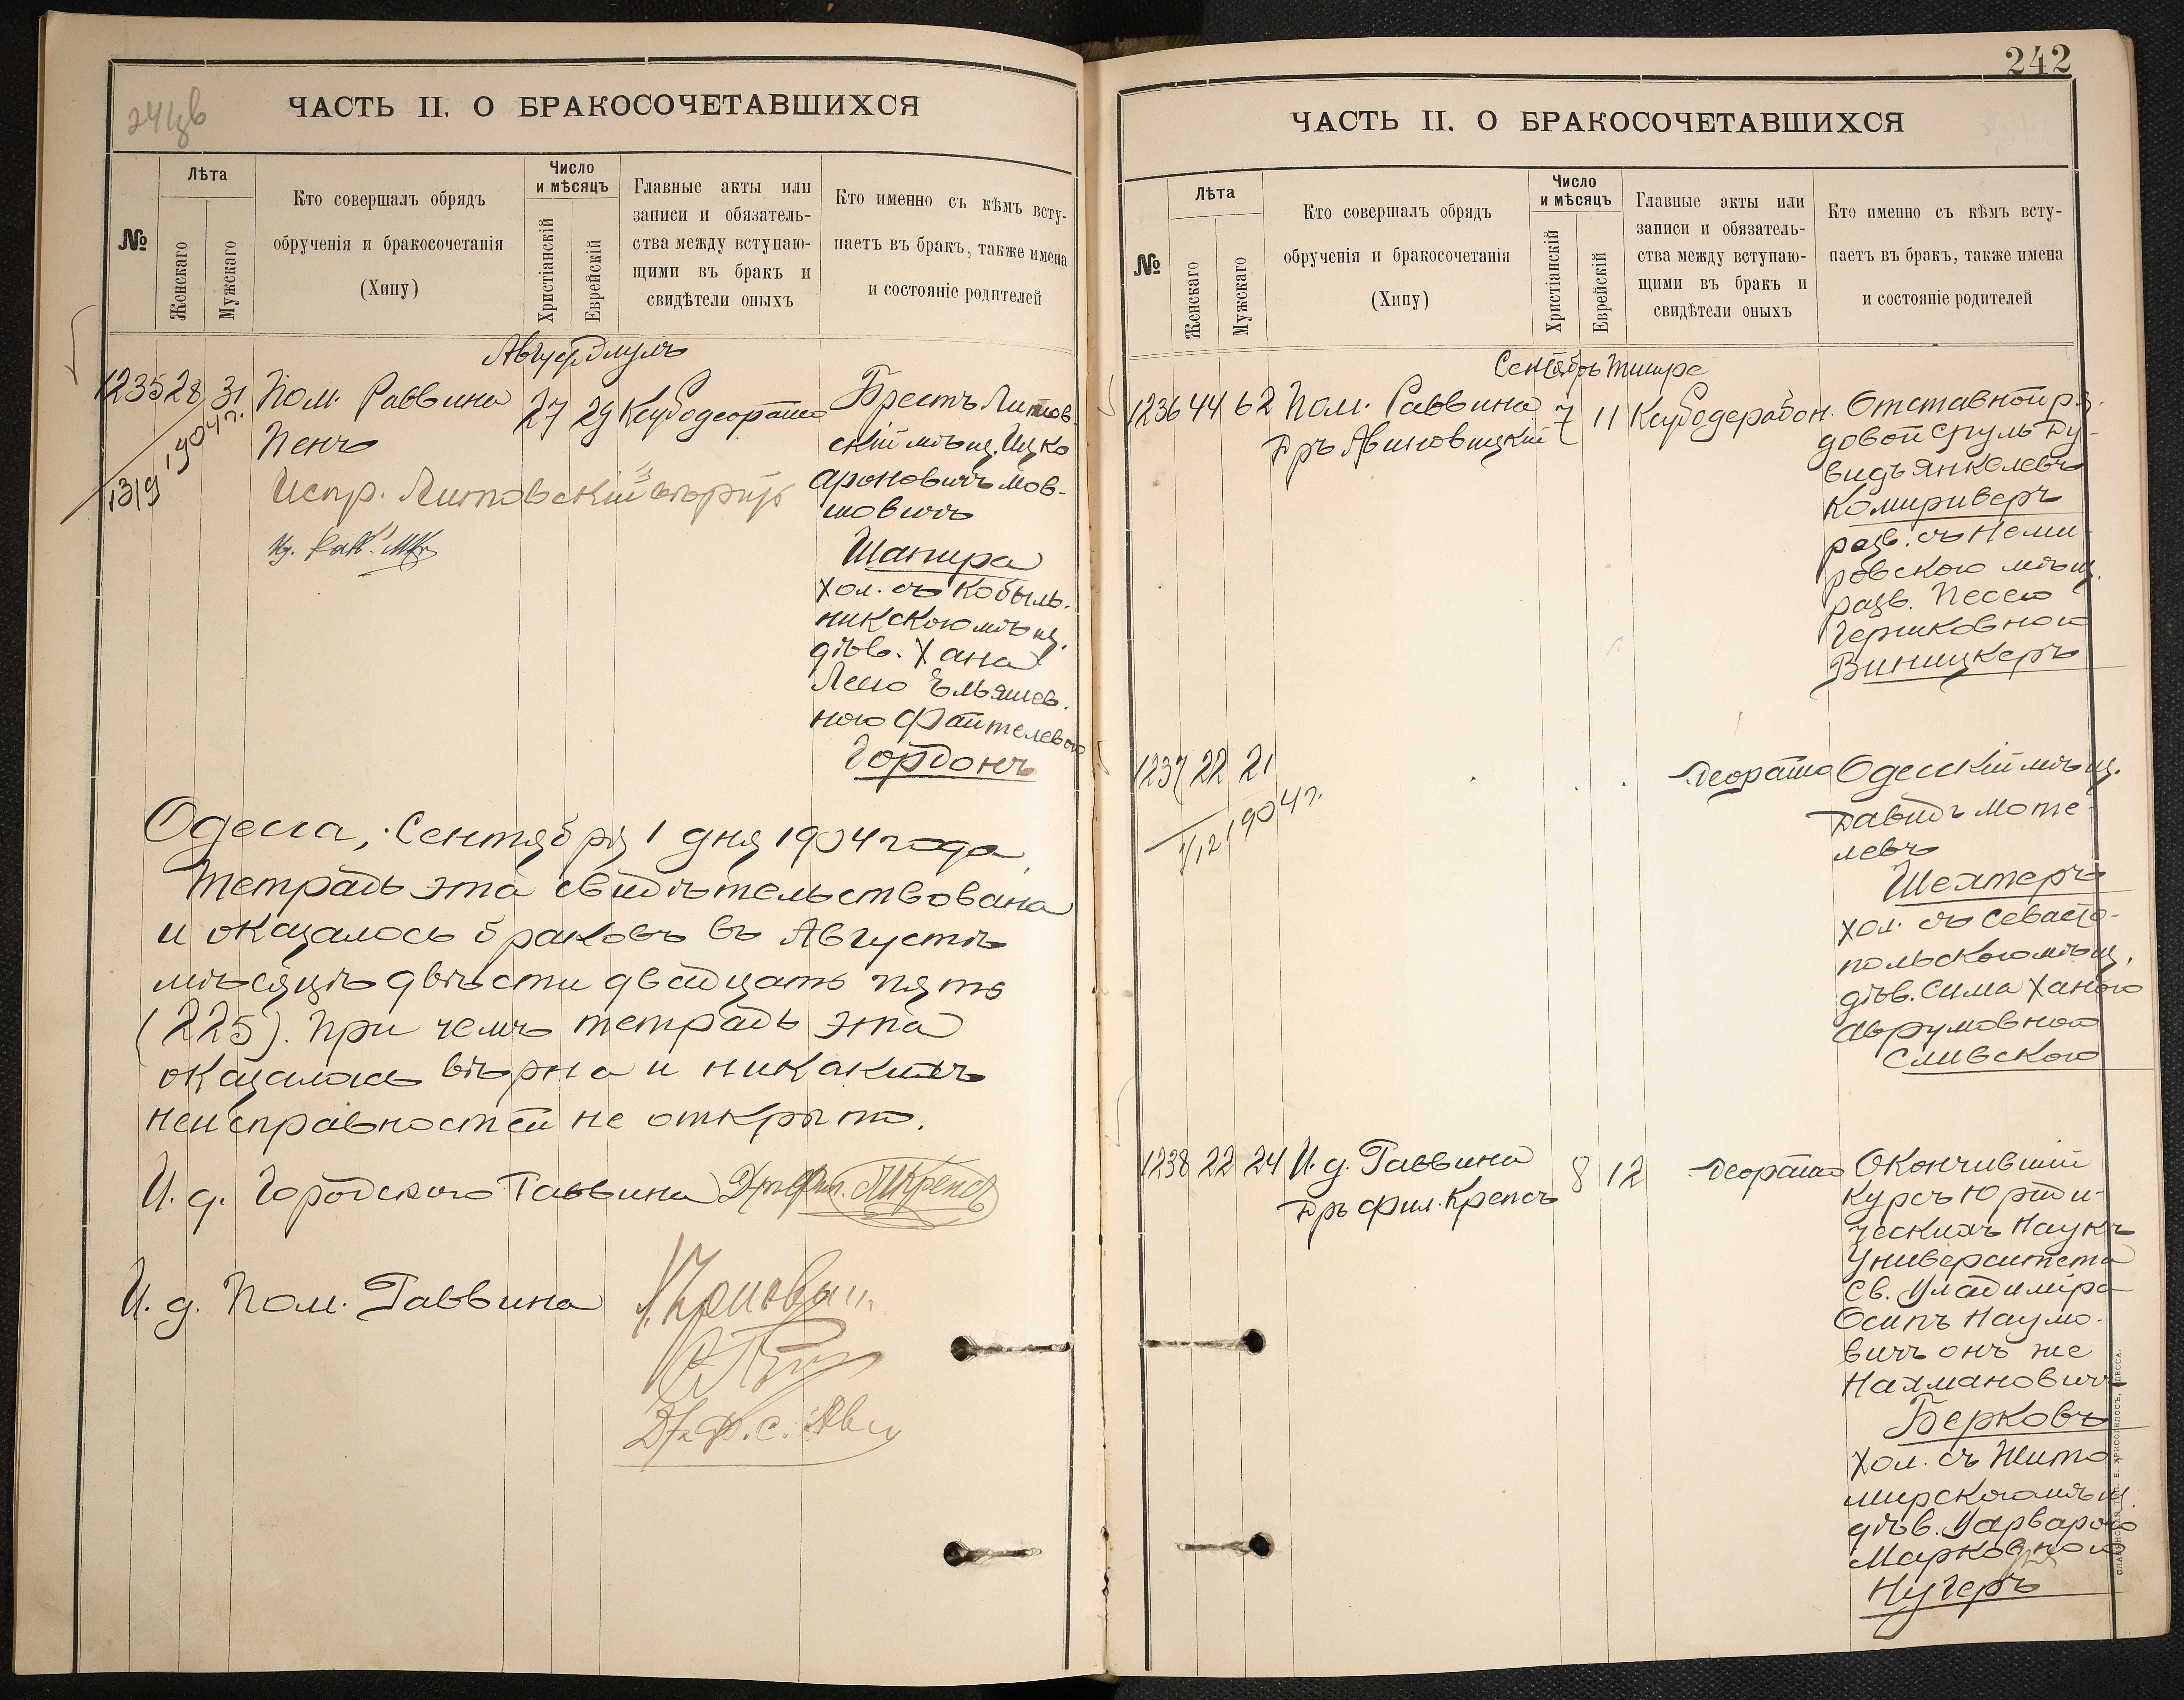 ЧАСТЬ II. О БРАКОСОЧЕТАВШИХСЯ
№
Лѣта
Женскаго
Мужскаго
Кто совершалъ обрядъ
обрученія и бракосочетанія
(Хипу)
Число
и мѣсяцъ
Христіанскій
Еврейскій
Главные акты или
записи и обязатель-
ства между вступаю-
щими въ бракъ и
свидѣтели оныхъ
Кто именно съ кѣмъ всту-
паетъ въ бракъ, также имена
и состояніе родителей
1235 28 31 Пом. Раввина
Пенъ
27 29
1319 1904 г.
Испр. Литовскій
Брестъ Литов-
скій мѣщ. Ицко
Ароновичъ Мов-
шовичъ
Шапира
хол. съ Кобыль-
никскою мѣщ.
дѣв. Хана
Лею Эльяшев.
ною Файтелевою
Гордонъ
Одесса, Сентября 1 дня 1904 года
Тетрадь эта свидѣтельствована
и оказалось браковъ въ Августѣ
мѣсяцѣ двѣсти двадцать пять
(225). При чемъ тетрадь эта
оказалась вѣрна и никакихъ
неисправностей не открыто.
И. д. Городского Раввина Д-ръ Фил. Крепсъ
И. д. Пом. Раввина
242
ЧАСТЬ II. О БРАКОСОЧЕТАВШИХСЯ
№
Лѣта
Женскаго
Мужскаго
Кто совершалъ обрядъ
обрученія и бракосочетанія
(Хипу)
Число
и мѣсяцъ
Христіанскій
Еврейскій
Главные акты или
записи и обязатель-
ства между вступаю-
щими въ бракъ и
свидѣтели оныхъ
Кто именно съ кѣмъ всту-
паетъ въ бракъ, также имена
и состояніе родителей
Сентябрь Тишре
1236 44 62 Пом. Раввина
Д-ръ Авиновицкій
7 11
Отставной ря-
довой Сруль Ду-
видъ Янкелевъ
Комириверъ
разв. съ Неми-
ровскою мѣщ.
разв. Песею
Гершковною
Виницкеръ
1237 22 21
1904 г.
Одесскій мѣщ.
Давидъ Моте-
левъ
Шехтеръ
хол. съ Севасто-
польскою мѣщ.
дѣв. Сима Ханою
Аврумовною
Сливскою
1238 22 24 И. д. Раввина
Д-ръ Фил. Крепсъ
8 12
Окончившій
курсъ юриди-
ческихъ наукъ
Университета
Св. Владиміра
Осипъ Наумо-
вичъ онъ же
Нахмановичъ
Берковъ
хол. съ Жито-
мирскою мѣщ.
дѣв. Варварою
Марковною
Нугеръ